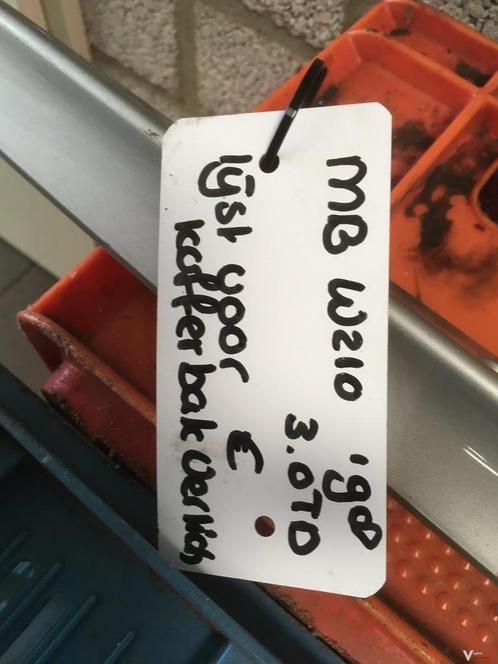 MB W210 '98
3.0TD
lijst voor €
kofferbak verlich